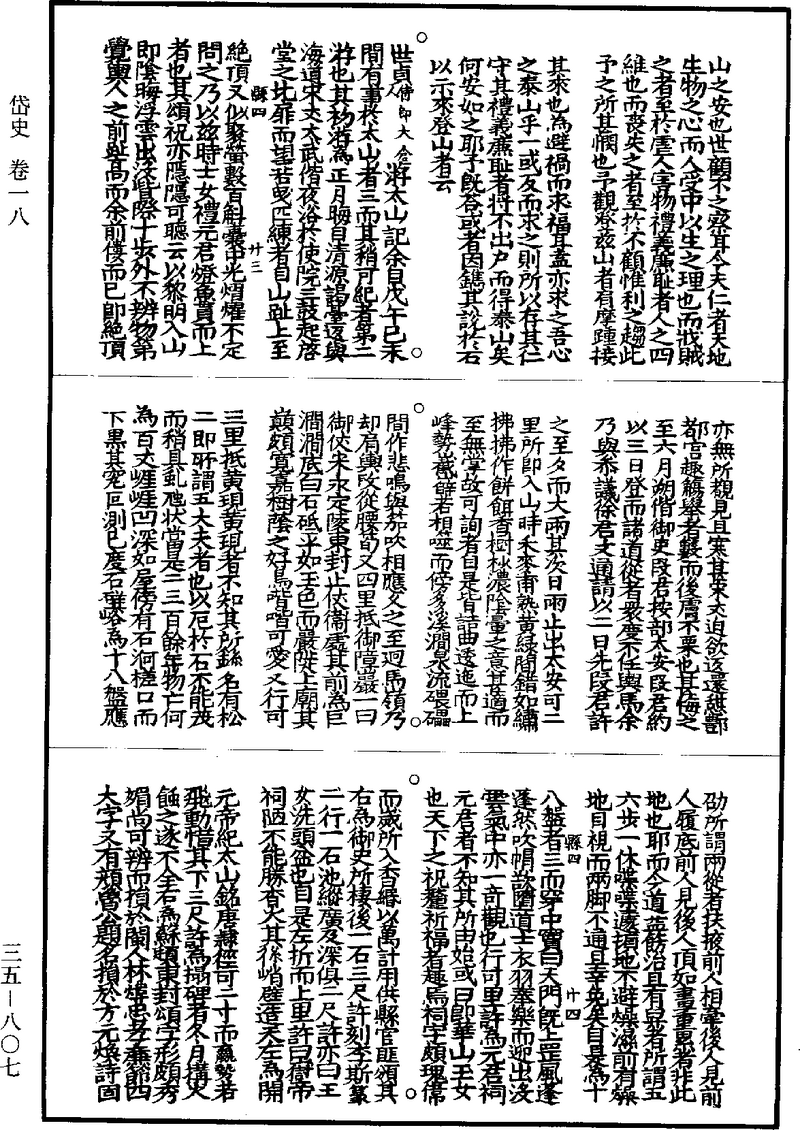 岱史　卷一八
山之安也世顧不之察耳今夫仁者天地
生物之心而人受中以生之理也而戕賊
之者至於虐人害物禮義廉恥者人之四
維也而喪失之者至於不顧惟利之趨此
予之所甚憫也予觀登茲山者肩摩踵接
其來也為避禍而求福耳盍亦求之吾心
之泰山乎一或反而求之則所以存其仁
守其禮義廉恥者將不出戶而得泰山矣
何安如之耶予既答或者因鐫其說於石
以示來登山者云
世貞　游太山記余自戊午己未
間有事於太山者三而其稍可紀者第二
游也其初游為正月晦自清源謁臺返與
海道宋丈大武偕夜浴於使院三鼓起啓
堂之北扉而望若曳匹練者自山趾上至
縣四　廿三
絕頂又似聚螢數百斛囊中光熠燿不定
問之乃以茲時士女禮元君燈魚貫而上
者也其頌祝亦隱隱可聽云以黎明入山
即陰晦浮雲出沒眥際十步外不辨物第
覺輿人之前趾高而余前僂而已即絕頂
亦無所覩見且寒甚宋丈迫欲返還憩酆
都宮趣觴舉者數而後膚不粟也其後之
至六月朔偕御史段君按部太安段君約
以三日登而諸道從者衆度不任輿馬余
乃與參議徐君文通請以二日先段君許
之至夕而大雨其次日雨止出太安可二
里所即入山時禾麥甫熟黃綠間錯如繡
拂拂作餅餌香樹秋濃陰臺之意甚適而
至無字故可詢者自是皆詰曲透迤而上
峰勢巉巀若相噬而傍多溪澗泉流礧礧
間作悲鳴與笳吹相應久之至迴馬嶺乃
却肩輿改從腰筍又四里抵御障巖一曰
御仗宋永定陵東封止仗衛處其前為巨
澗澗底白石砥平如玉色而嚴陡上廟其
巔頗寬嘉樹蔭之好鳥喈喈可愛又行可
三里抵黃現黃現者不知其所繇名有松
二即所謂五大夫者也以厄於石不能茂
而稍具虬虺狀當是二三百餘年物亡何
為百丈崖崖凹深如屋傍有石洞槎口而
下黑其究叵測已度石壁峪為十八盤應
劭所謂兩從者扶掖前人相牽後人見前
人履底前人見後人頂如畫重累者非此
地也耶而今道益飭治且有舁者所謂五
六步一休喋喋遽頓地不避燥濕前有燥
地目視而兩脚不通且幸免矣自是為十
縣四　廿四
八盤者三而穿中竇曰天門既上罡風蓬
蓬然吹帽欲墮道士衣羽奏樂而迎出沒
雲氣中亦一奇觀也行可里許為元君祠
元君者不知其所由始或曰即華山玉女
也天下之祝釐祈福者趣焉祠宇頗瑰偉
而歲所入香緡以萬計用供縣官匪頒其
右為御史所棲後一石三尺許刻李斯篆
二行一石池縱廣及深俱二尺許亦曰玉
女洗頭盆也自是左折而上里許曰嶽帝
祠陋不能勝香火其後峭壁造天左為開
元帝紀太山銘唐隸徑可二寸而贏勢若
飛動惜其下三尺許為搨碑者冬月搆火
蝕之遂不全右為蘇頲東封頌字形頗秀
媚尚可辨而損於閩人林焯忠孝廉節四
大字又有顏魯公題名損於方元煥詩固
三五—八〇七